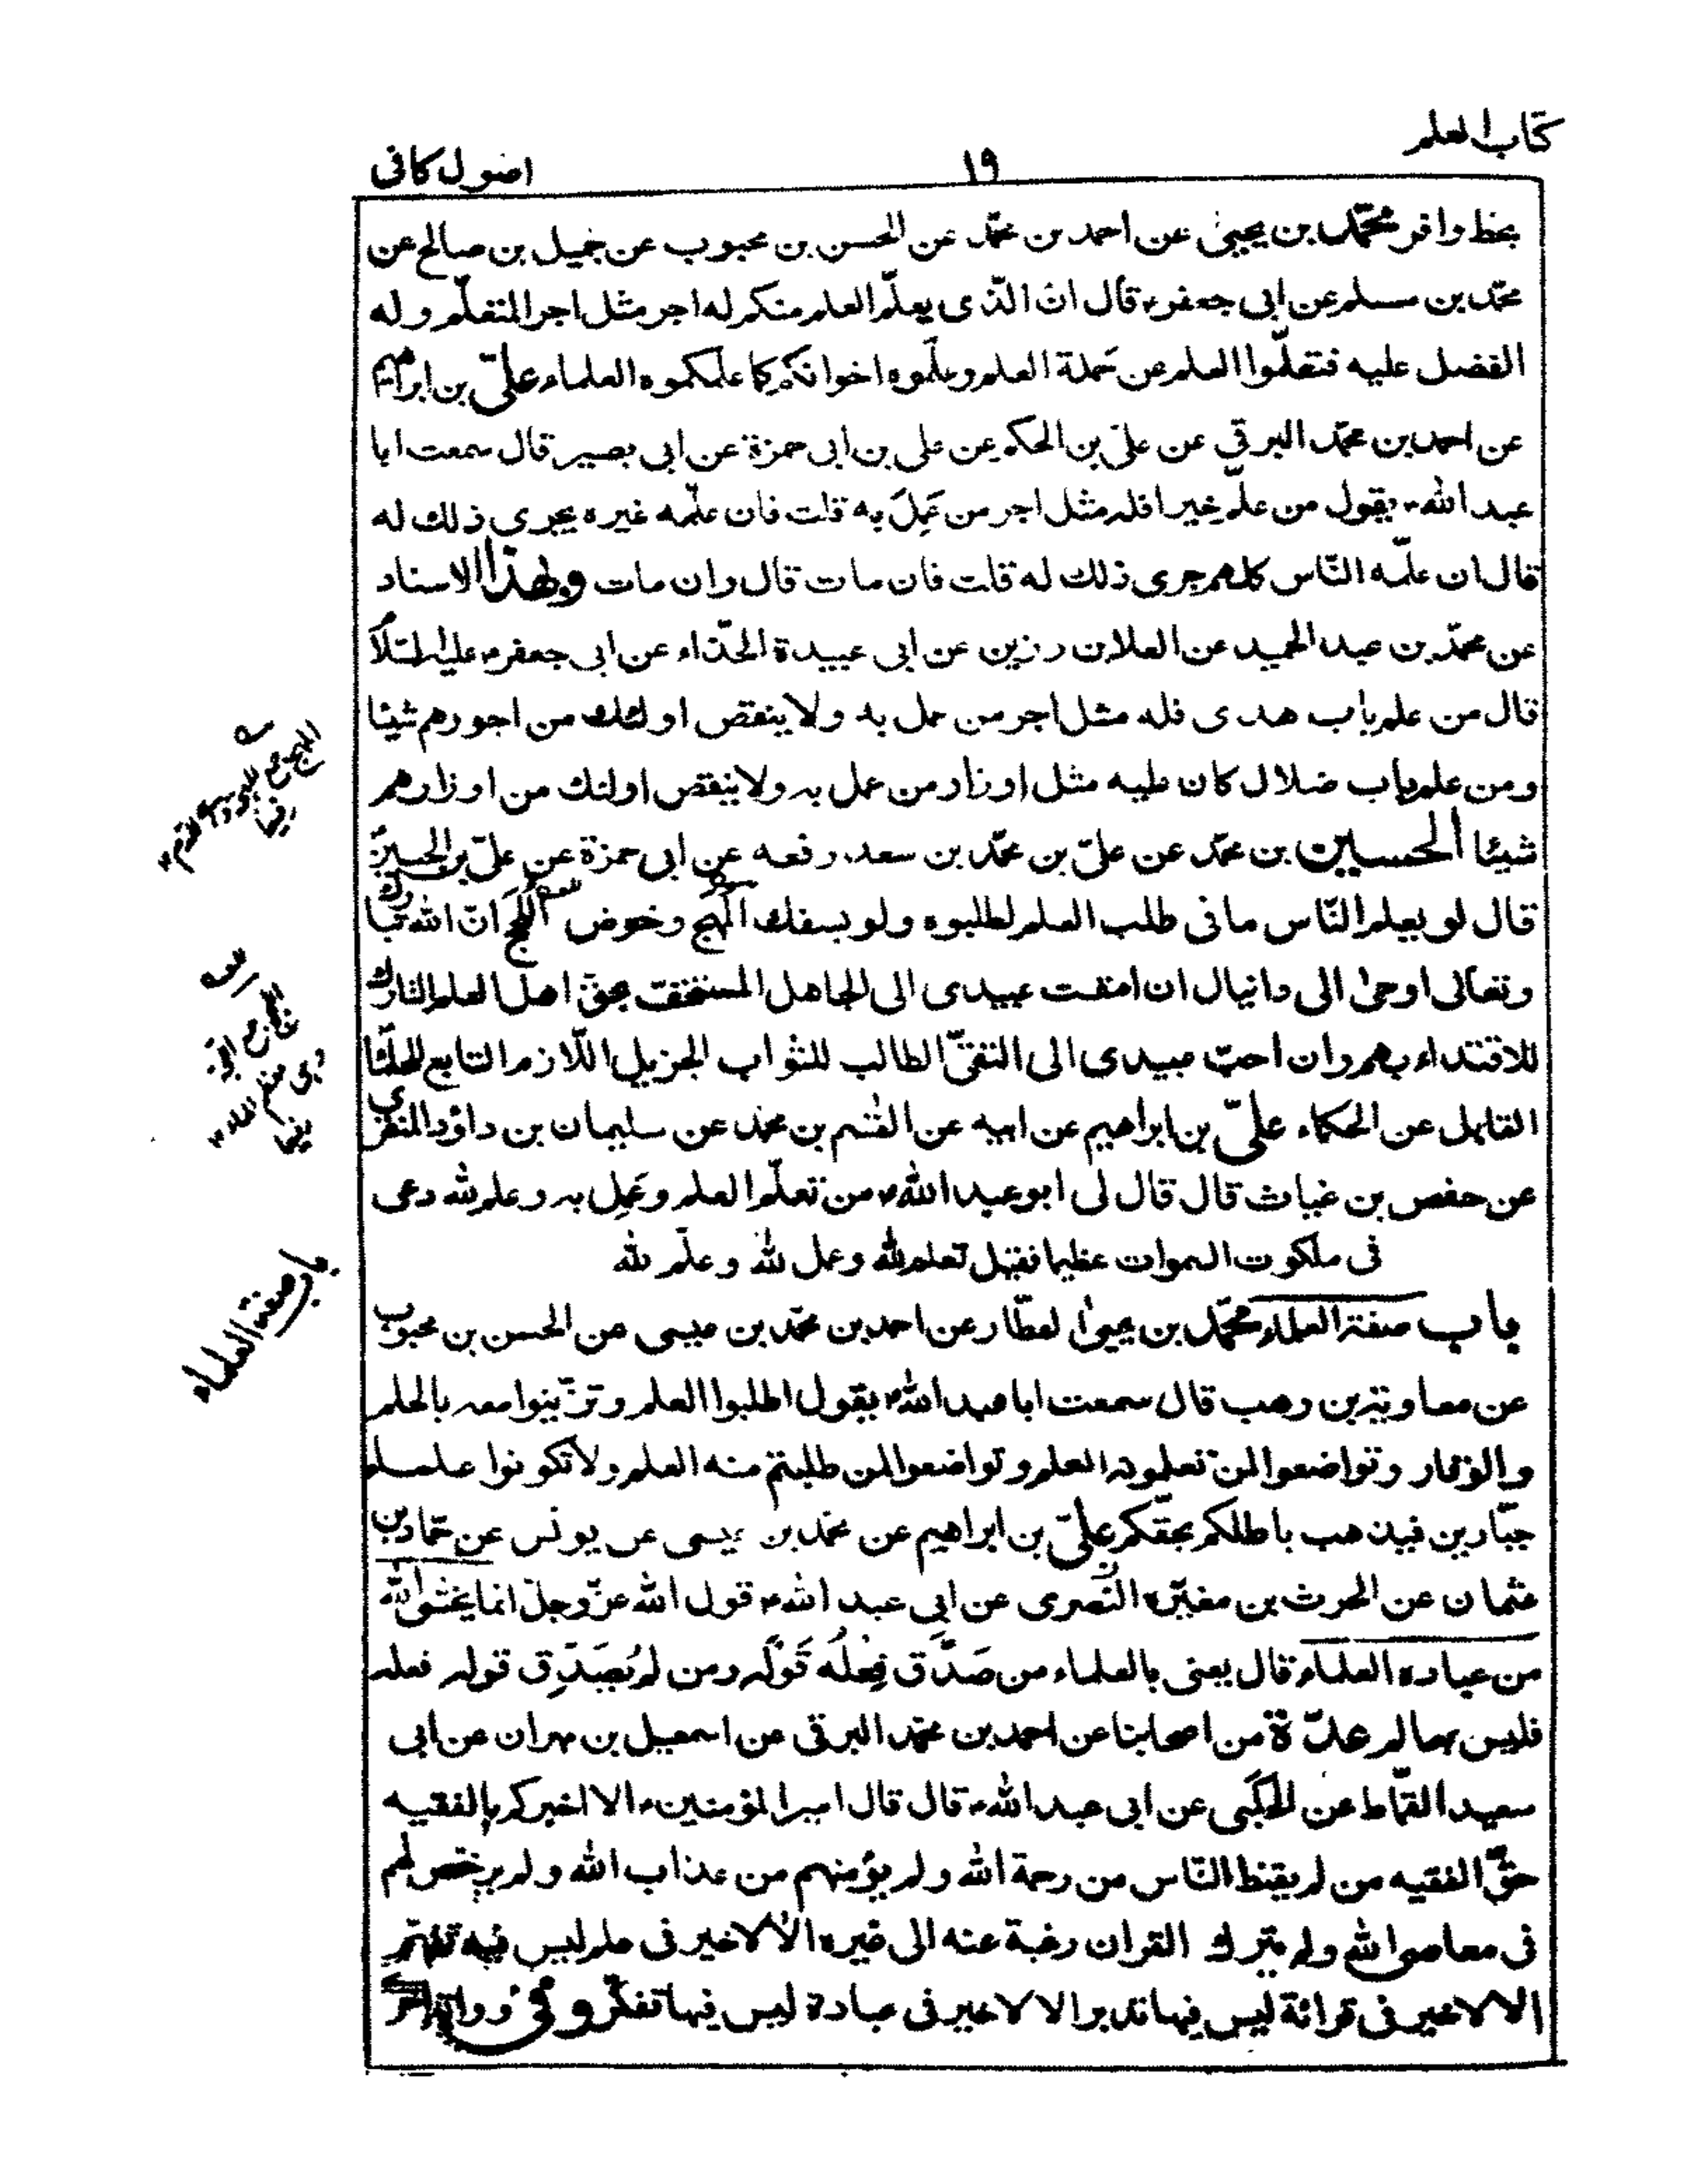 كتاب العلم
١٩
اصول كافى
بحظ وافر محمّد بن يحيى عن احمد بن محمّد عن الحسن بن محبوب عن جميل بن صالح عن
محمّد بن مسلم عن ابى جعفر ع قال ان الّذى يعلّم العلم منكم له اجر مثل اجر المتعلّم وله
الفضل عليه فتعلّموا العلم عن حَملة العلم وعلّموه اخوانكم كما علمكموه العلماء علىّ بن ابراهيم
عن احمد بن محمّد البرقى عن علىّ بن الحكم عن على بن ابى حمزة عن ابى بصير قال سمعت ابا
عبد الله ع يقول من علّم خيرا فله مثل اجر من عَمِلَ به قلت فان علّمه غيره يجرى ذلك له
قال ان علّمه النّاس كلهم جرى ذلك له قلت فان مات قال وان مات وبهذا الاسناد
عن محمّد بن عبد الحميد عن العلا بن رزين عن ابى عبيدة الحذّاء عن ابى جعفر ع عليه السّلام
قال من علم باب هدى فله مثل اجر من عمل به ولا ينقص اولئك من اجورهم شيئا
ومن علم باب ضلال كان عليه مثل اوزار من عمل به ولا ينقص اولئك من اوزارهم
شيئا الحسين بن محمّد عن علىّ بن محمّد بن سعد رفعه عن ابى حمزة عن علىّ بن الحسين
قال لو يعلم النّاس ما فى طلب العلم لطلبوه ولو بسفك المُهَج وخوض اللُّجج انّ الله تبارك
وتعالى اوحى الى دانيال ان امقت عبيدى الى الجاهل المستخفّ بحقّ اهل العلم التارك
للاقتداء بهم وان احبّ عبيدى الى التقىّ الطالب للثواب الجزيل اللّازم للعلماء التابع للحلماء
القابل عن الحكماء علىّ بن ابراهيم عن ابيه عن القسم بن محمّد عن سليمان بن داؤد المنقرى
عن حفص بن غياث قال قال لى ابو عبد الله ع من تعلّم العلم وعَمِل به وعلم لله دعى
فى ملكوت السموات عظيما فقيل تعلم لله وعمل لله وعلّم لله
باب صفة العلماء محمّد بن يحيى العطّار عن احمد بن محمّد بن عيسى عن الحسن بن محبوب
عن معاوية بن وهب قال سمعت ابا عبد الله ع يقول اطلبوا العلم وتزيّنوا معه بالحلم
والوقار وتواضعوا لمن تعلمونه العلم وتواضعوا لمن طلبتم منه العلم ولا تكونوا علماء
جبّارين فيذهب باطلكم بحقّكم علىّ بن ابراهيم عن محمّد بن عيسى عن يونس عن حمّاد بن
عثمان عن الحرث بن مغيرة النّصرى عن ابى عبد الله ع قول الله عزّ وجلّ انما يخشى الله
من عباده العلماء قال يعنى بالعلماء من صَدَّق فِعلُه قَولَه ومن لم يُصَدِّق قوله فعله
فليس بعالم عدّة من اصحابنا عن احمد بن محمّد البرقى عن اسمعيل بن مهران عن ابى
سعيد القمّاط عن الحلبى عن ابى عبد الله ع قال قال امير المؤمنين ع الا اخبركم بالفقيه
حقّ الفقيه من لم يقنط النّاس من رحمة الله ولم يؤمنهم من عذاب الله ولم يرخّص لهم
فى معاصى الله ولم يترك القران رغبة عنه الى غيره الا لا خير فى علم ليس فيه تفهّم
الا لا خير فى قرائة ليس فيها تدبر الا لا خير فى عبادة ليس فيها تفكّر وفى رواية اخرى
باب صفة العلماء